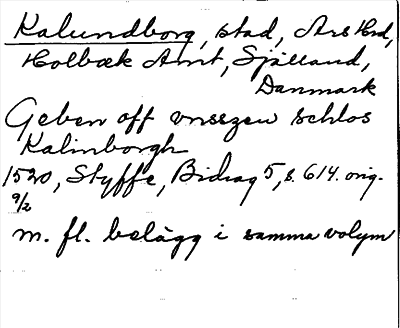 Kalundborg, stad, Ars Hrd,
Holbæk Amt, Själland,
Danmark
Geben off vnsszen schlos
Kalinborgh
1520, Styffe, Bidrag 5, s. 614. orig.
9/2
m. fl. belägg i samma volym